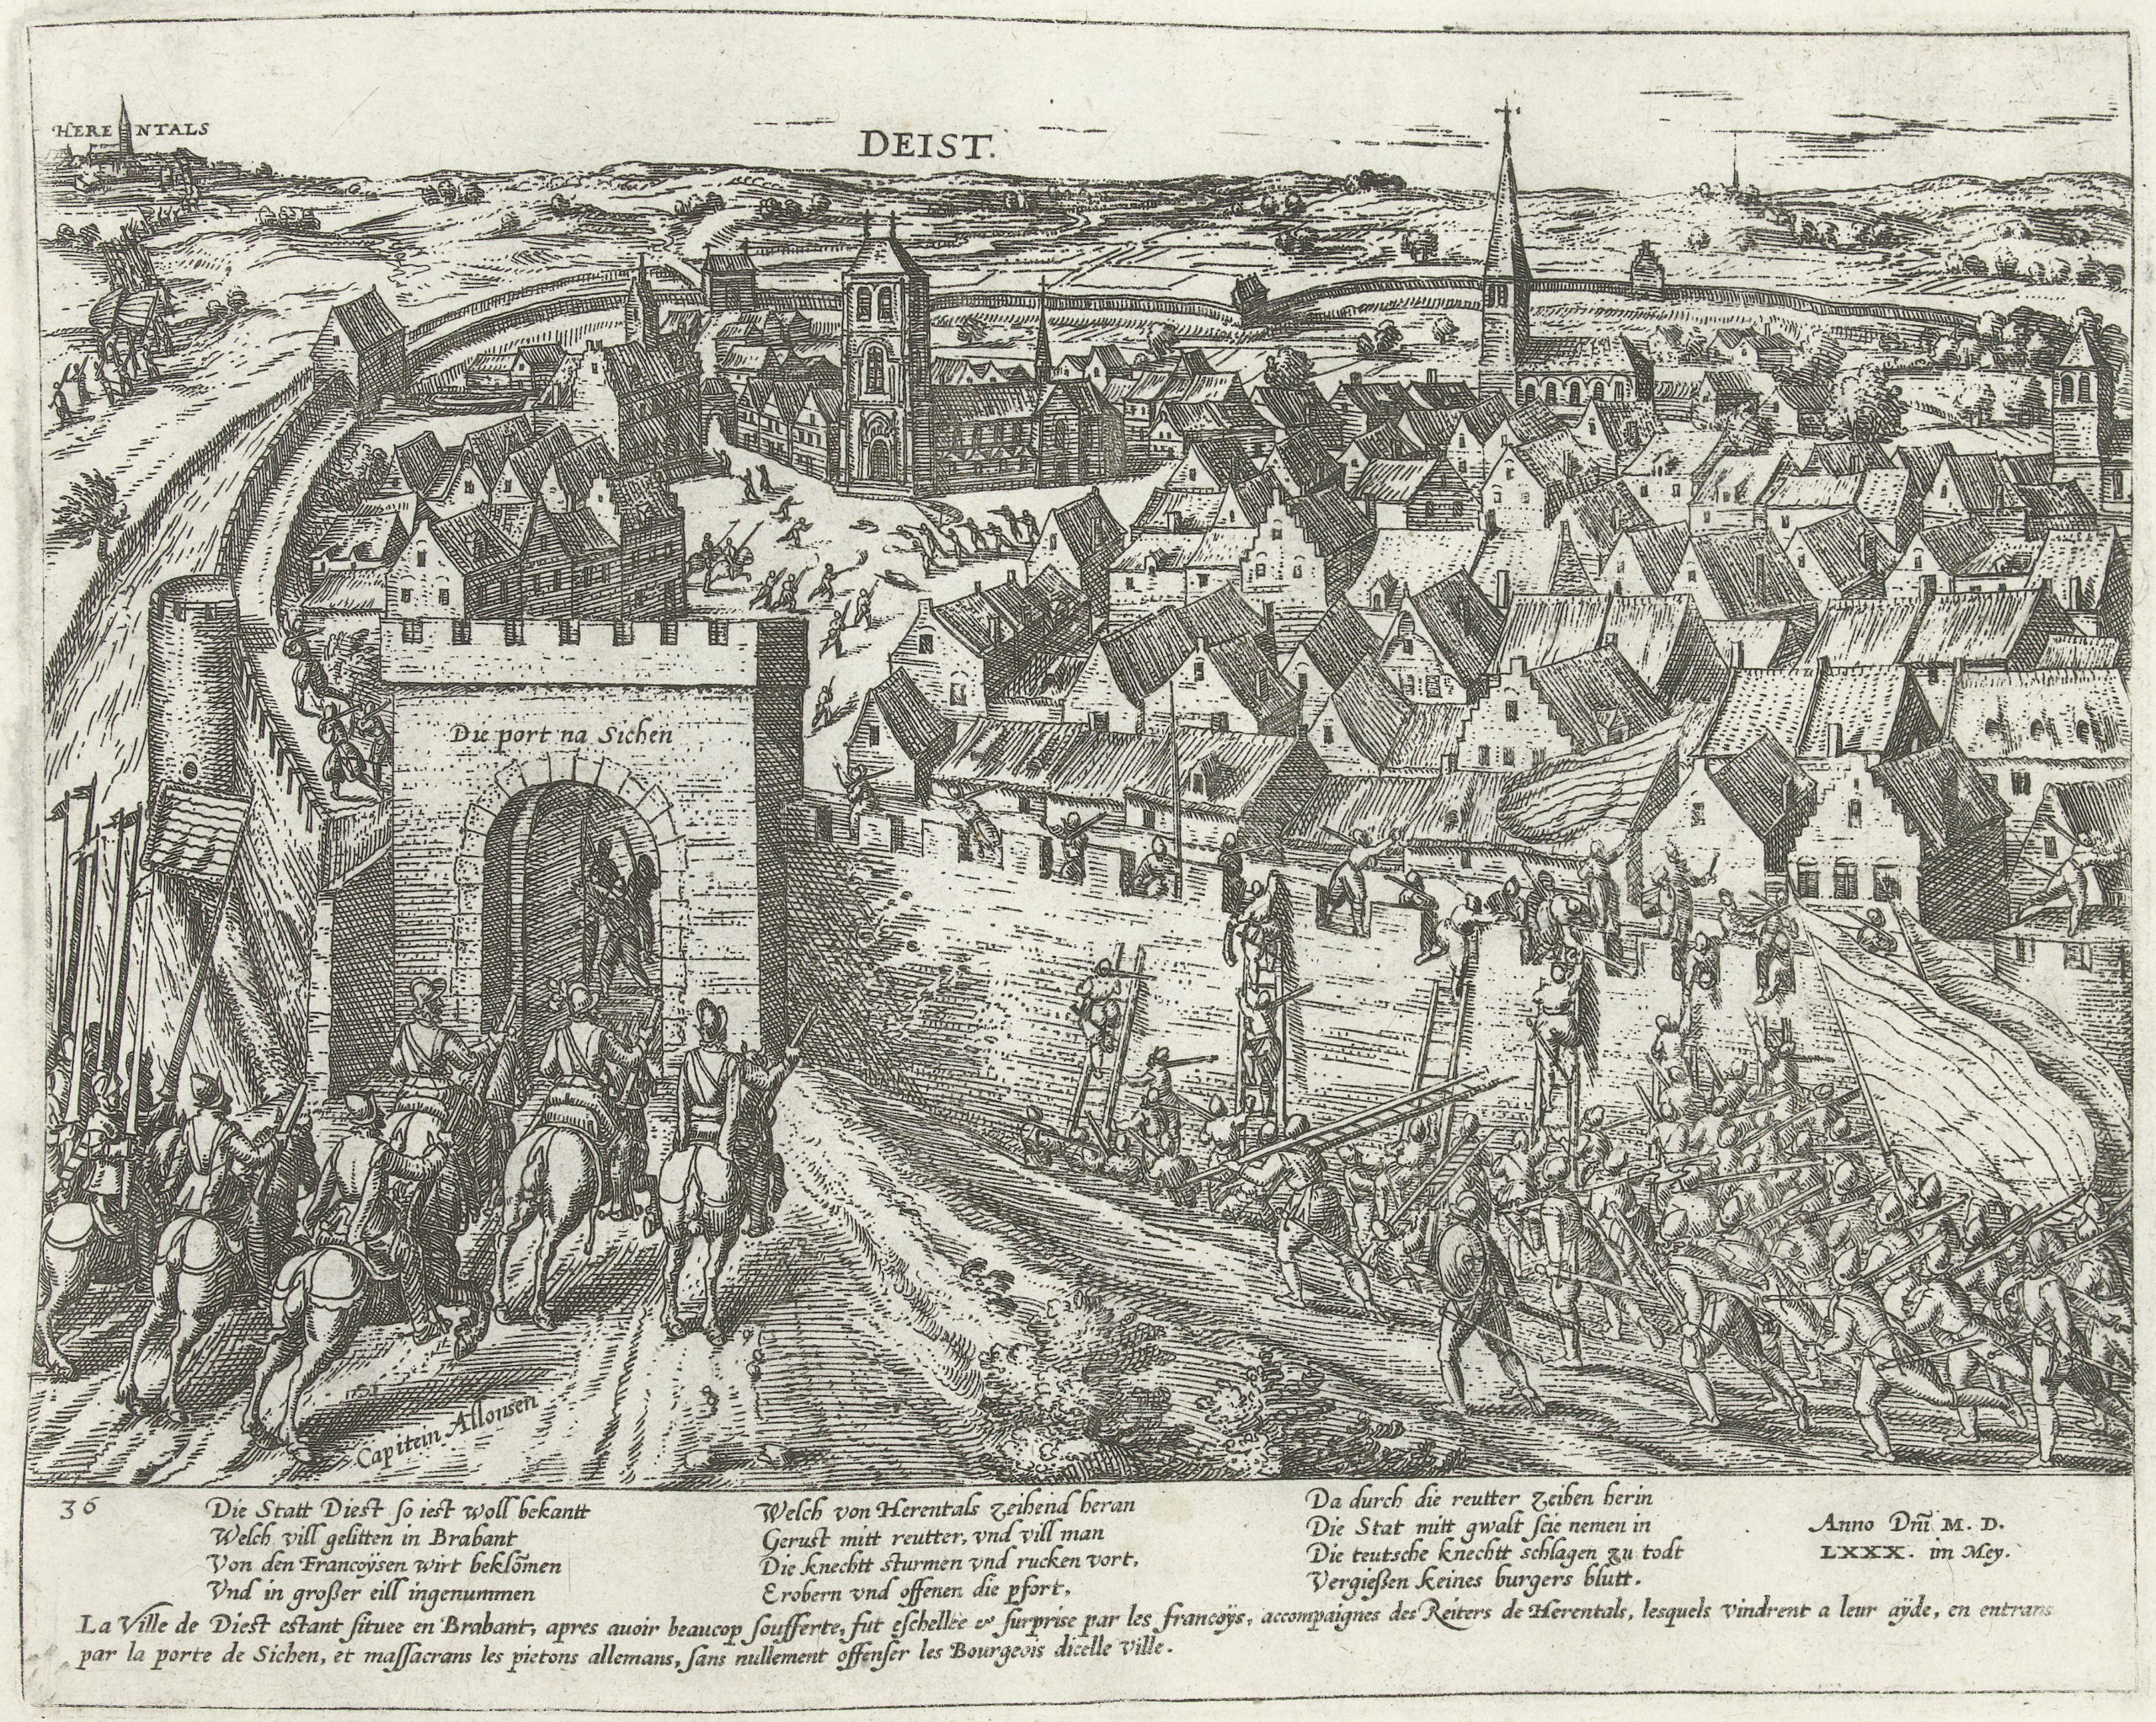 HERENTALS
DEIST.
Die port na Sichen
Capitein Allonsen
36
Die Statt Diest so iest woll bekantt
Welch vill gelitten in Brabant
Von den Francoÿsen wirt beklom̃en
Vnd in großer eill ingenummen
Welch von Herentals zeihend heran
Gerust mitt reutter, vnd vill man
Die knechtt sturmen vnd rucken vort,
Erobern vnd offenen die pfort,
Da durch die reutter zeihen herin
Die Stat mitt gwalt seie nemen in
Die teutsche knechtt schlagen zu todt
Vergießen keines burgers blutt.
Anno Dñi M. D.
LXXX. im Mey.
La Ville de Diest estant situee en Brabant, apres auoir beaucop soufferte, fut eschellée & surprise par les francoÿs, accompaignes des Reiters de Herentals, lesquels vindrent a leur aÿde, en entrans
par la porte de Sichen, et massacrans les pietons allemans, sans nullement offenser les Bourgeois dicelle ville.